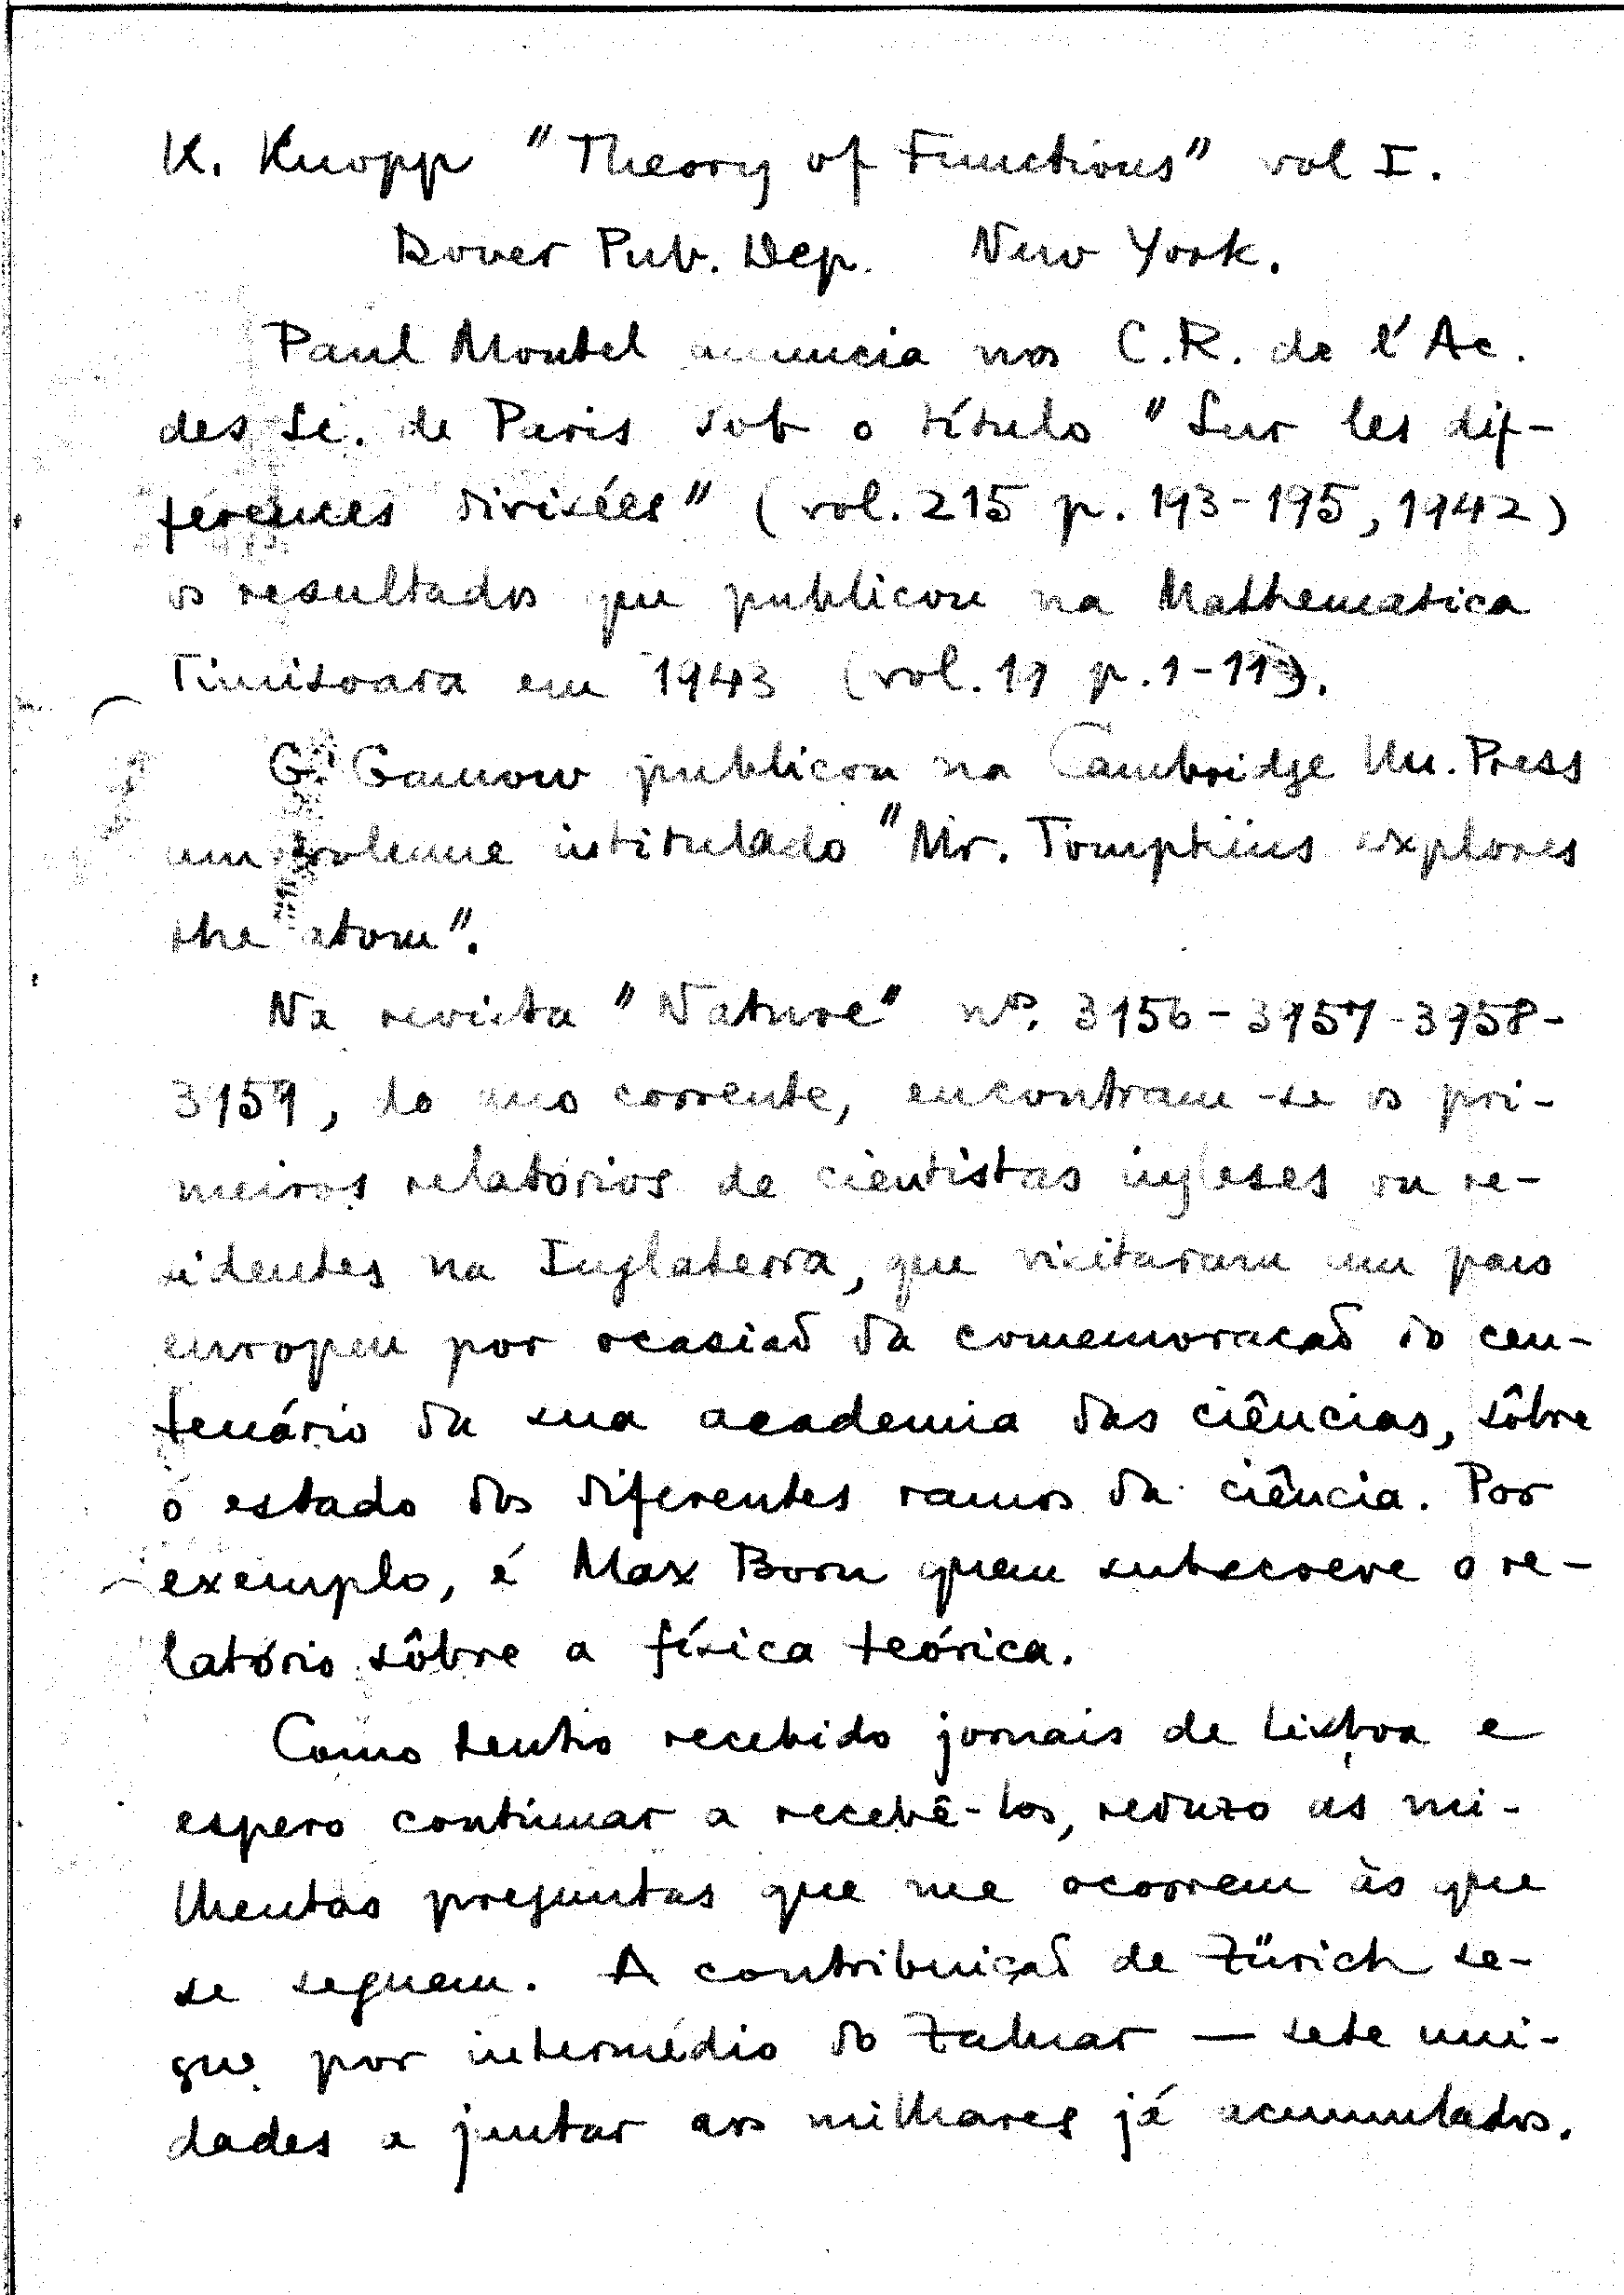 K. Knopp "Theory of Functions" vol I.
Dover Pub. Dep. New York.
Paul Montel anuncia nos C.R. de l'Ac.
des Sc. de Paris sob o título "Sur les dif-
férences divisées" (vol. 215 p. 193-195, 1942)
os resultados que publicou na Mathematica
Timisoara em 1943 (vol. 19 p. 1-11).
G. Gamow publicou na Cambridge Un. Press
um volume intitulado "Mr. Tompkins explores
the atom".
Na revista "Nature" nos. 3956-3957-3958-
3959, do ano corrente, encontram-se os pri-
meiros relatórios de cientistas ingleses ou re-
sidentes na Inglaterra, que visitaram um pais
europeu por ocasiaõ da comemoracaõ do cen-
tenário da sua academia das ciências, sôbre
o estado dos diferentes ramos da ciência. Por
exemplo, é Max Born quem subscreve o re-
latório sôbre a física teórica.
Como tenho recebido jornais de Lisboa e
espero continuar a recebê-los, reduzo as mi-
lhentas preguntas que me ocorrem às que
se seguem. A contribuiçaõ de Zürich se-
gue por intermédio do Zaluar — sete uni-
dades a juntar aos milhares já acumulados.